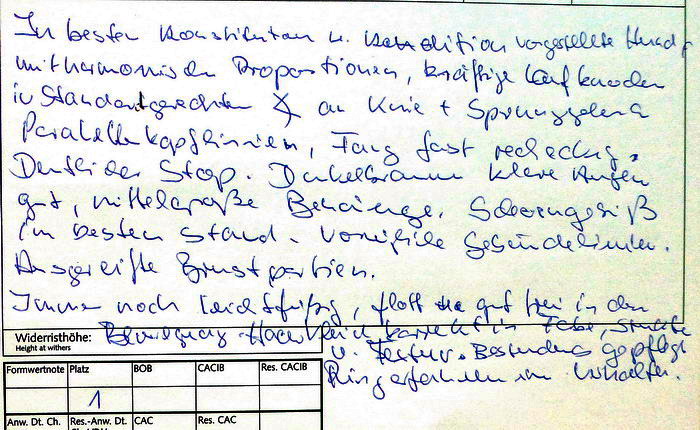 In besten Konstitution u. Kondition vorgestellte Hund
mit harmonischen Proportionen, kräftige Laufknochen
in Standardgerechten ∡ an Knie + Sprunggelenk
Parallele Kopflinien, Fang fast rechteckig.
Deutlicher Stop. Dunkelbraune klare Augen
gut, mittelgroße Behänge. Scherengebiß
im besten Stand. Vorzügliche Gebäudelinien.
Ausgereifte Brustpartien.
Immer noch leichtfüßig, flott u gut frei in den
Bewegung. Haarkleid korrekt in Farbe, Struktur
u. Textur. Besonders gepflegt
Ringerfahren im Verhalten.
Widerristhöhe:
Height at withers
Formwertnote Platz BOB CACIB Res. CACIB
1
Anw. Dt. Ch. Res.-Anw. Dt. CAC Res. CAC